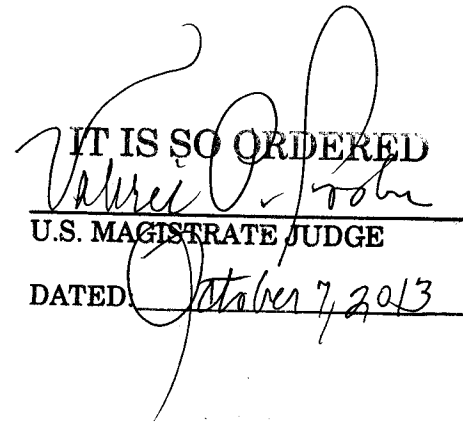 IT IS SO ORDERED
Valerie P. Cooke
U.S. MAGISTRATE JUDGE
DATED: October 7, 2013